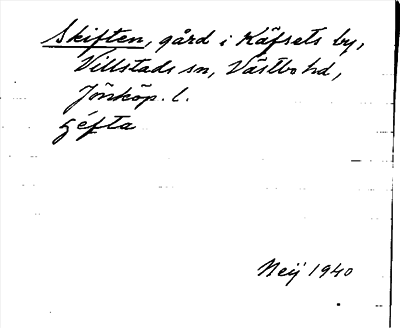 Skiften, gård i Käfsets by,
Villstads sn, Västbo hd,
Jönköp. l.
ʃéfta
Neij 1940